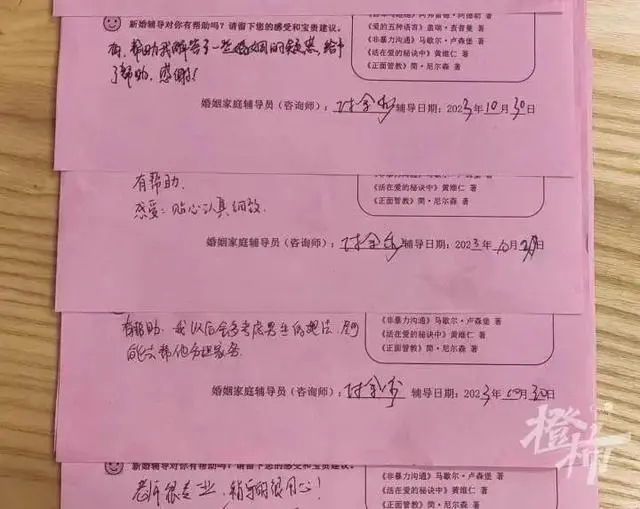 新婚辅导对你有帮助吗？请留下您的感受和宝贵建议。
有，帮助我解答了一些婚姻的疑惑，给予
了帮助，感谢！
《爱的五种语言》盖瑞·查普曼 著
《非暴力沟通》马歇尔·卢森堡 著
《活在爱的秘诀中》黄维仁 著
《正面管教》简·尼尔森 著
婚姻家庭辅导员（咨询师）： 辅导日期：2023年10月30日
有帮助.
感受：贴心认真细致.
《活在爱的秘诀中》黄维仁 著
《正面管教》简·尼尔森 著
婚姻家庭辅导员（咨询师）： 辅导日期：2023年10月 日
有帮助. 我以后会多考虑男生的想法，
帮他分担家务.
《非暴力沟通》马歇尔·卢森堡 著
《活在爱的秘诀中》黄维仁 著
《正面管教》简·尼尔森 著
婚姻家庭辅导员（咨询师）： 辅导日期：2023年10月30日
新婚辅导对你有帮助吗？请留下您的感受和宝贵建议。
老师很专业，辅导的很用心！
《非暴力沟通》马歇尔·卢森堡 著
《活在爱的秘诀中》黄维仁 著
《正面管教》简·尼尔森 著
橙柿